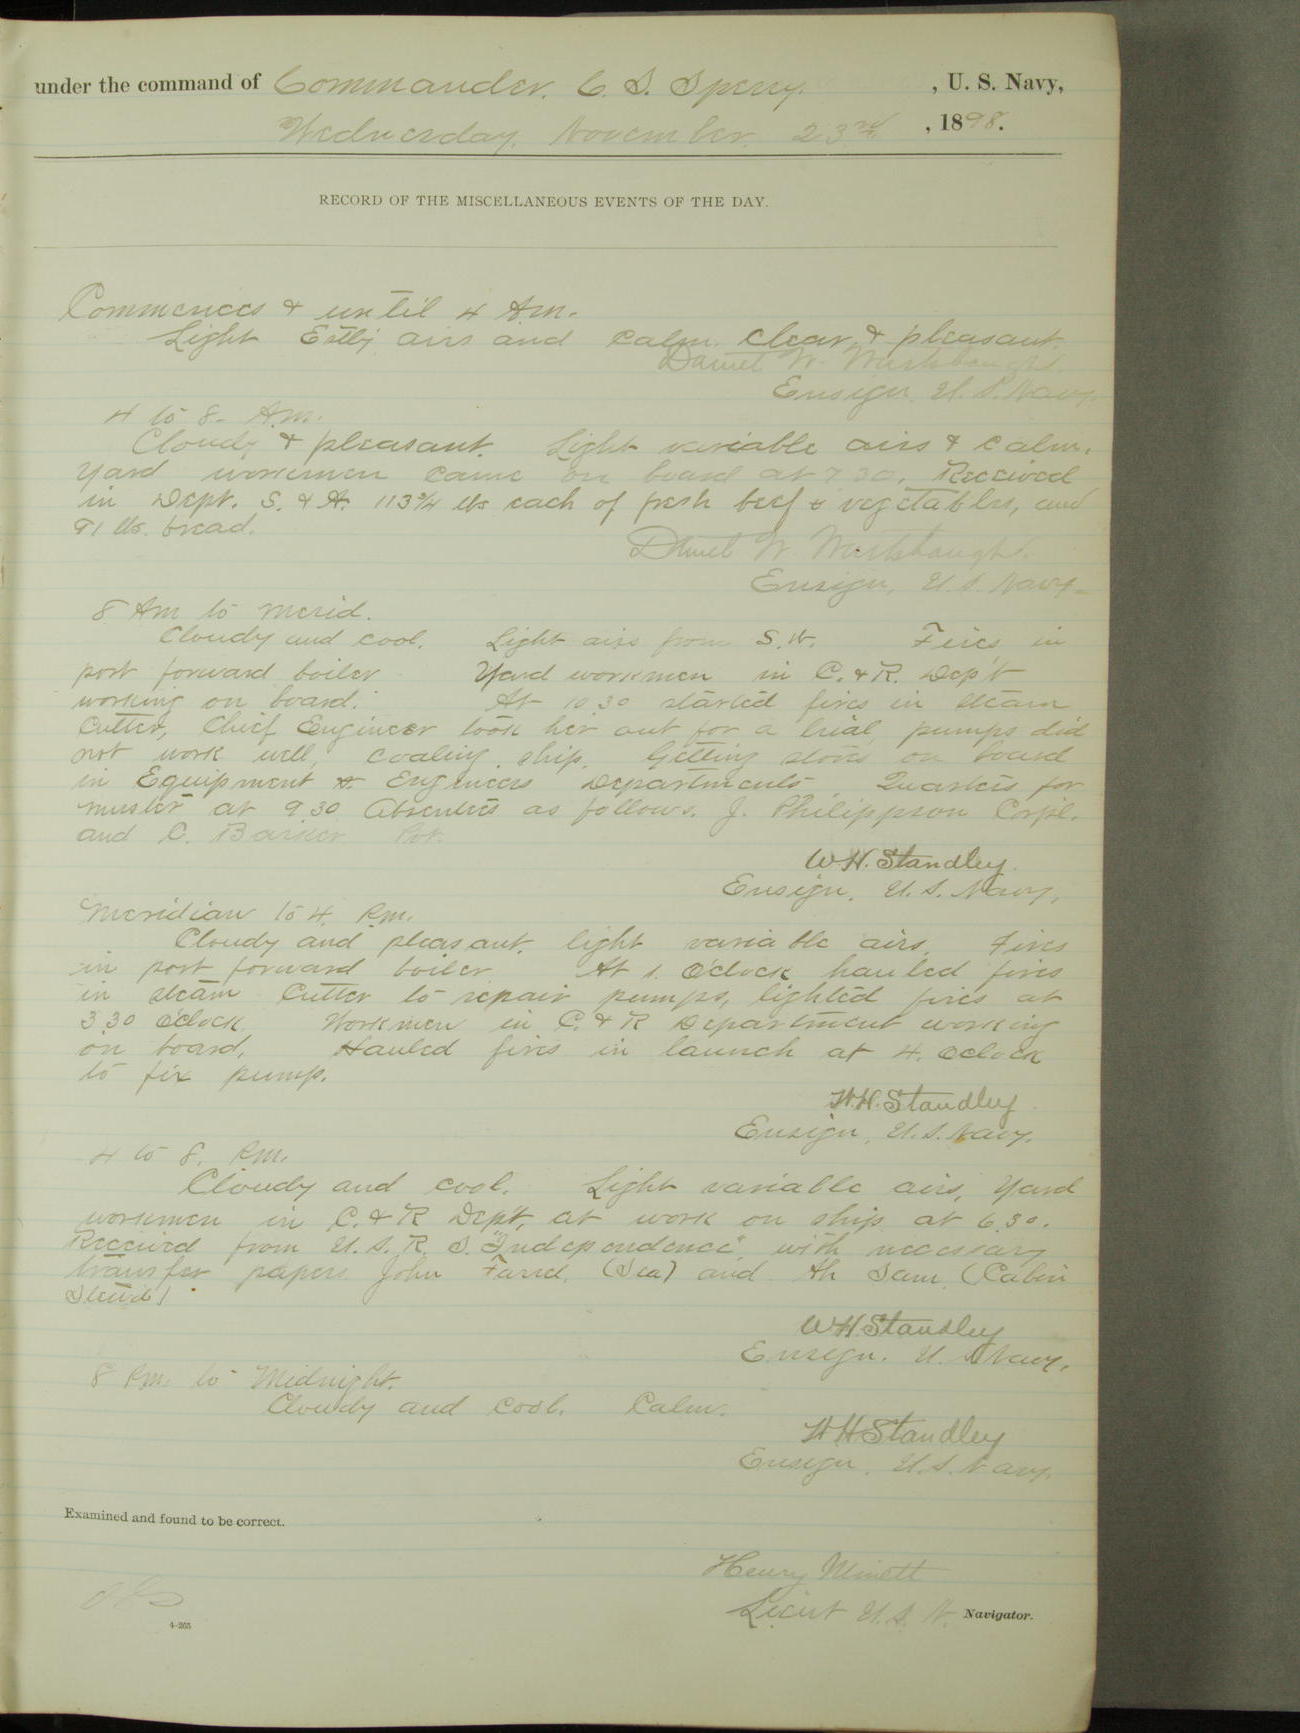 under the command of Commander. C. S. Sperry. , U. S. Navy,
Wednesday, November. 23rd , 1898.
RECORD OF THE MISCELLANEOUS EVENTS OF THE DAY.
Commences & until 4 Am.
Light Eastly airs and calm. clear & pleasant.
Daniel W.
Ensign, U. S. Navy.
4 to 8- A.m.
Cloudy & pleasant. Light variable airs & calm.
Yard workmen came on board at 7 30. Received
in Dept. S. & A. 113 3/4 lbs each of fresh beef & vegetables, and
91 lbs. bread.
Daniel W.
Ensign, U. S. Navy-
8 Am to merid.
Cloudy and cool. Light airs from S.W. Fires in
port forward boiler Yard workmen in C. & R. Dep't
working on board. At 10 30 started fires in steam
Cutter, Chief Engineer took her out for a trial, pumps did
not work well, coaling ship. Getting stores on board
in Equipment & Engineers Departments. Quarters for
muster at 9 30 Absentees as follows. J. Philippson Corp'l.
and C. Barker Pvt.
W.H. Standley.
Ensign, U. S. Navy.
Meridian to 4 Pm.
Cloudy and pleasant. light variable airs. Fires
in port forward boiler At 1. O'clock hauled fires
in steam Cutter to repair pumps, lighted fires at
3 30 O'clock. Workmen in C. & R Department working
on board, Hauled fires in launch at 4. Oclock
to fix pump.
W.H. Standley
Ensign, U. S. Navy.
4 to 8. Pm.
Cloudy and cool. Light variable airs, Yard
workmen in C. & R Dep't, at work on ship at 6 30.
Received from U. S. R. S. "Independence", with necessary
transfer papers John Farrel, (Sea) and Ah Sam (Cabin
Stew'd)
W.H. Standley
Ensign. U. S Navy.
8 Pm. to Midnight.
Cloudy and cool. Calm.
W H Standley
Ensign. U. S. Navy.
Examined and found to be correct.
Henry Minett
Lieut U. S. N. Navigator.
4-265